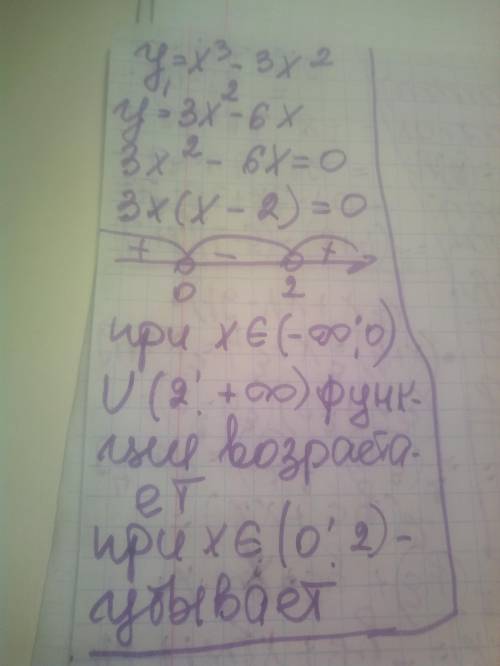 y=x³-3x²
y'=3x²-6x
3x²-6x=0
3x(x-2)=0
+ - +
0 2
при x∈(-∞;0)
∪(2;+∞) функ-
ции возраста-
ет
при x∈(0;2)-
убывает